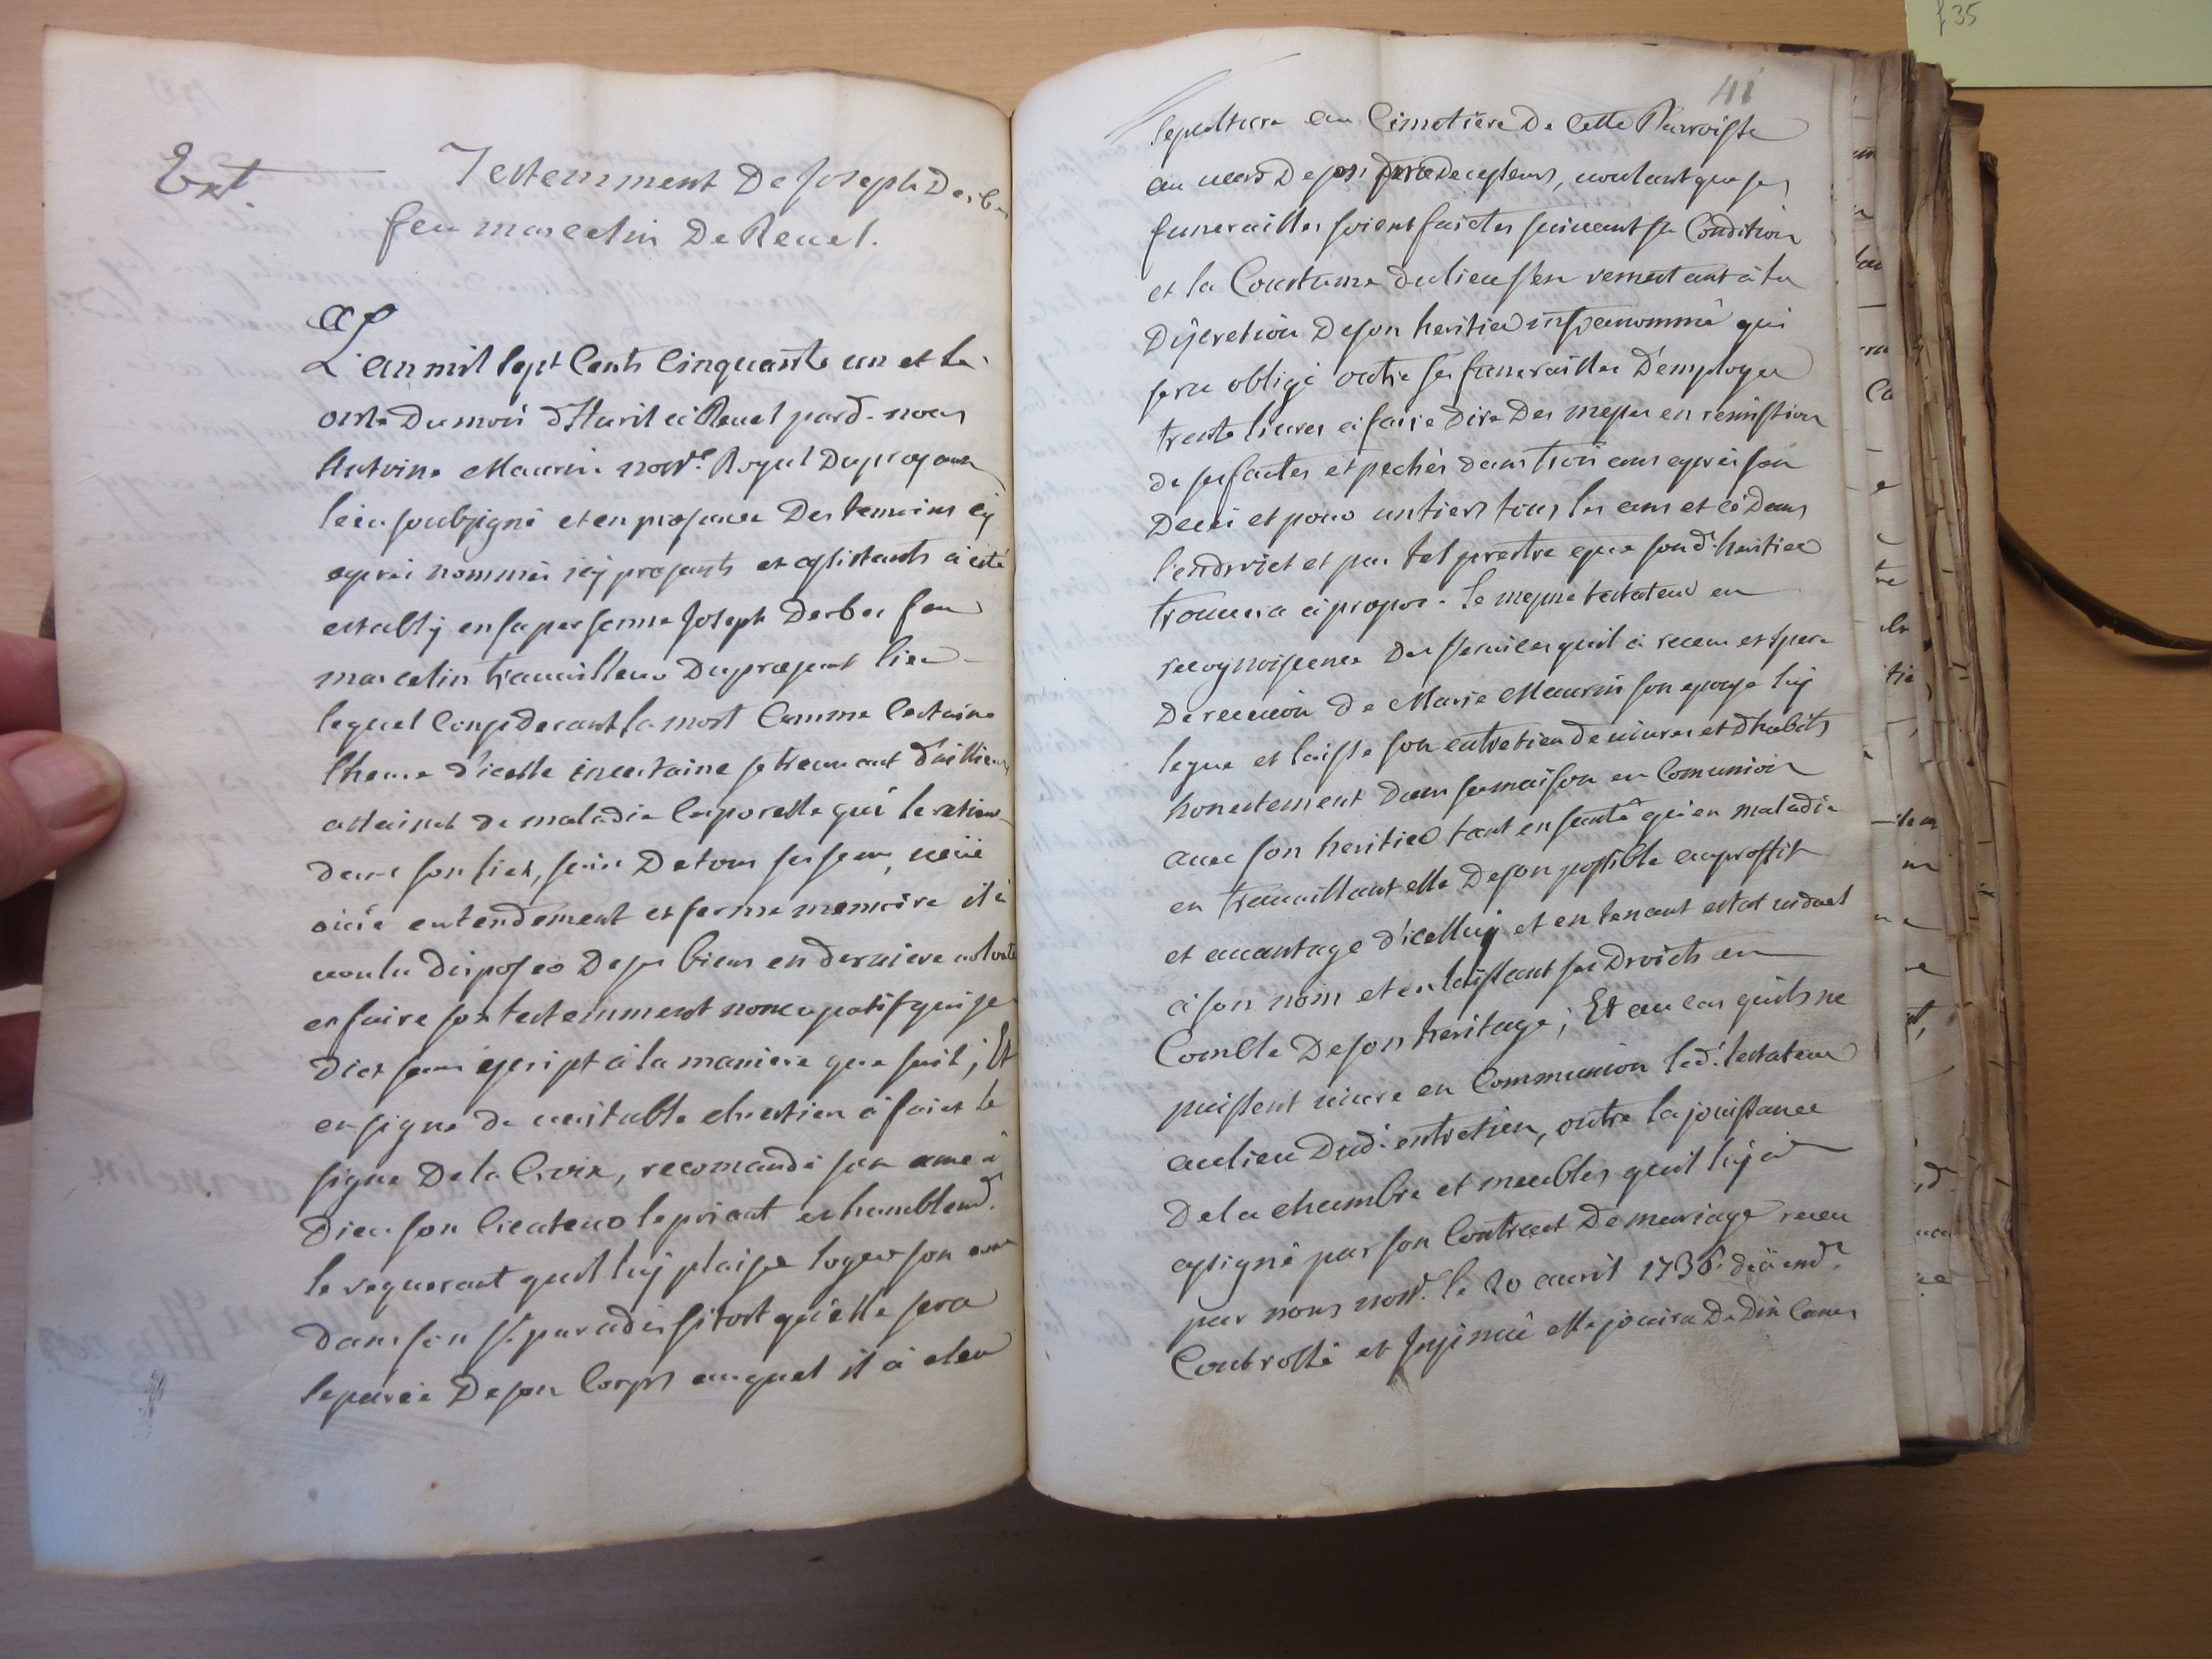 f 35
41
Ext.
Testemment De Joseph Derbes
feu marcelin De Revel.
L'an mil sept Cents Cinquante un et le
onze Du mois d'Avril à Revel pard. nous
Antoine Maurin nore. Royal Du pnt aux
lieu soubsigné et en presance Des temoins cy
après nommés icy presants et assistants a esté
estably en sa personne Joseph Derbes feu
marcelin travailleur Du present lieu
lequel Considerant la mort Comme Certaine
l'heure d'icelle incertaine se treuvant d'aillieurs
attainct de maladie Corporelle qui le retient
dans son lict, sain De tous ses sens, veüe
ouïe entendement et ferme memoire il à
voulu disposer De ses biens en derniere volonté
et faire son testemment noncupatif qui se
dict sans escript à la maniere que suit; Et
en signe de veritable chrestien a faict le
signe De la Croix, recomandé son ame à
Dieu son Createur le priant et humblemt.
le requerant quil luy plaise loger son ame
dans son st. paradis sitost qu'elle sera
separée De son Corps auquel il à eleu
sepulture au Cimetiere De Cette Parroisse
au vars De ses prædecesseurs, voulant que ses
funerailles soient faictes suivant sa Condition
et la Coustume du lieu s'en remettant à la
Discretion De son heritier insp nommé qui
sera obligé outre ses funerailles D'employer
trente livres à faire Dire Des messes en remission
de ses fautes et pechés dans trois ans après son
Deces et pour un tiers tous les ans et ce Dans
l'endroict et par tel prestre que sond. heritier
trouvera à propos. Le mesme testateur en
recognoissence Des services quil à receu et spere
De recevoir de Marie Maurin son epouse luy
legue et laisse son entretien de vivres et d'habits
honestement Dans sa maison en Comunion
avec son heritier tant en santé qu'en maladie
en travaillant elle De son possible au proffit
et avantage d'icelluy et en tenant estat viduel
à son nom et en laissant ses Droicts en
Comble De son heritage; Et au cas quils ne
puissent vivre en Communion led. testateur
au lieu Dud. entretien, outre la jouissance
De la chambre et meubles quil luy à
assigné par son Contract De mariage receu
par nous nore. le 20 avril 1736. deüemt.
Controllé et Insinué elle jouira De Dix Canes